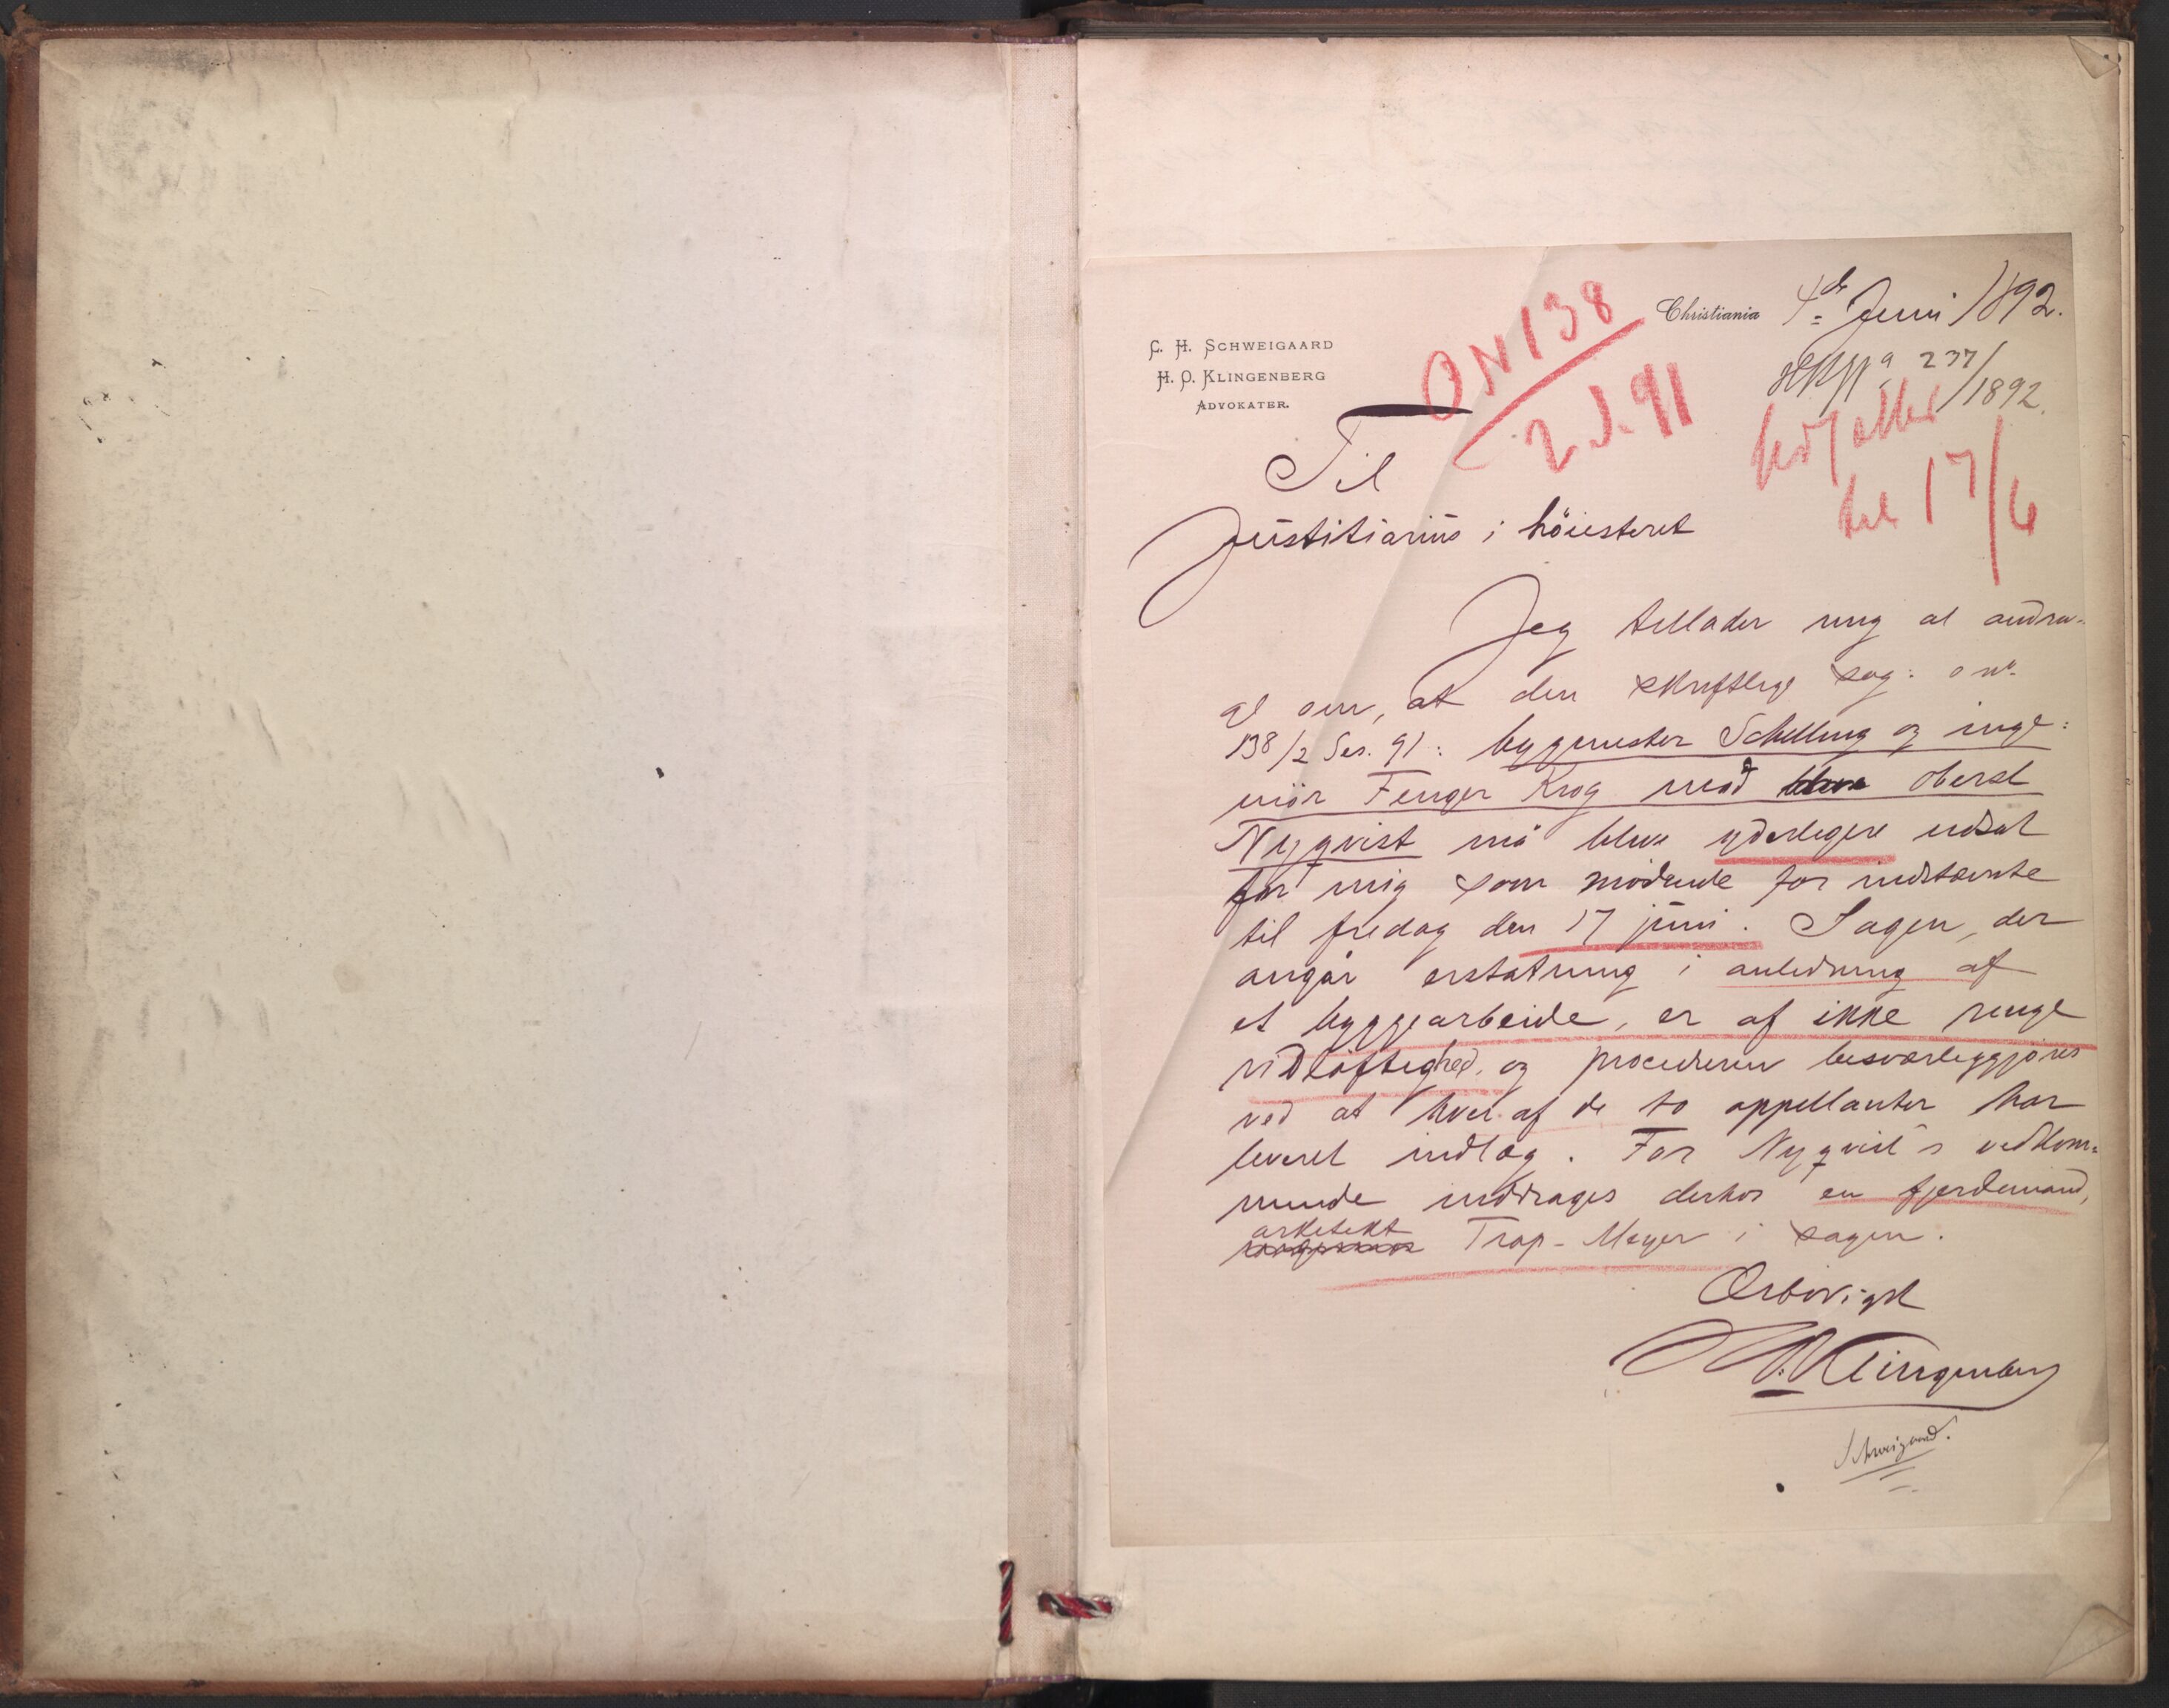 Christiania 4de Juni 1892.
C. H. SCHWEIGAARD
H. O. KLINGENBERG
ADVOKATER.
ON 138
2 S. 91
237/1892.
til 17/6
Til
Justitiarius i höiesteret
Jeg tillader mig at andra-
ge om, at den skriftlige sag: o nr.
138/2 Ses. 91: bygmester Schelling og inge-
niör Fenger Krog mod oberst
Nyqvist må blive yderligere udsat
for mig som mödende for indstævnte
til fredag den 17 juni. Sagen, der
angår erstatning i anledning af
et byggearbeide, er af ikke ringe
vidlöftighed, og proceduren besværliggjöres
ved at hver af de to appellanter har
leveret indlæg. For Nyqvist's vedkom-
mende inddrages derhos en fjerdemand,
arkitekt Trap-Meyer i sagen.
Ærbödigst
H.O. Klingenberg
Schweigaard.